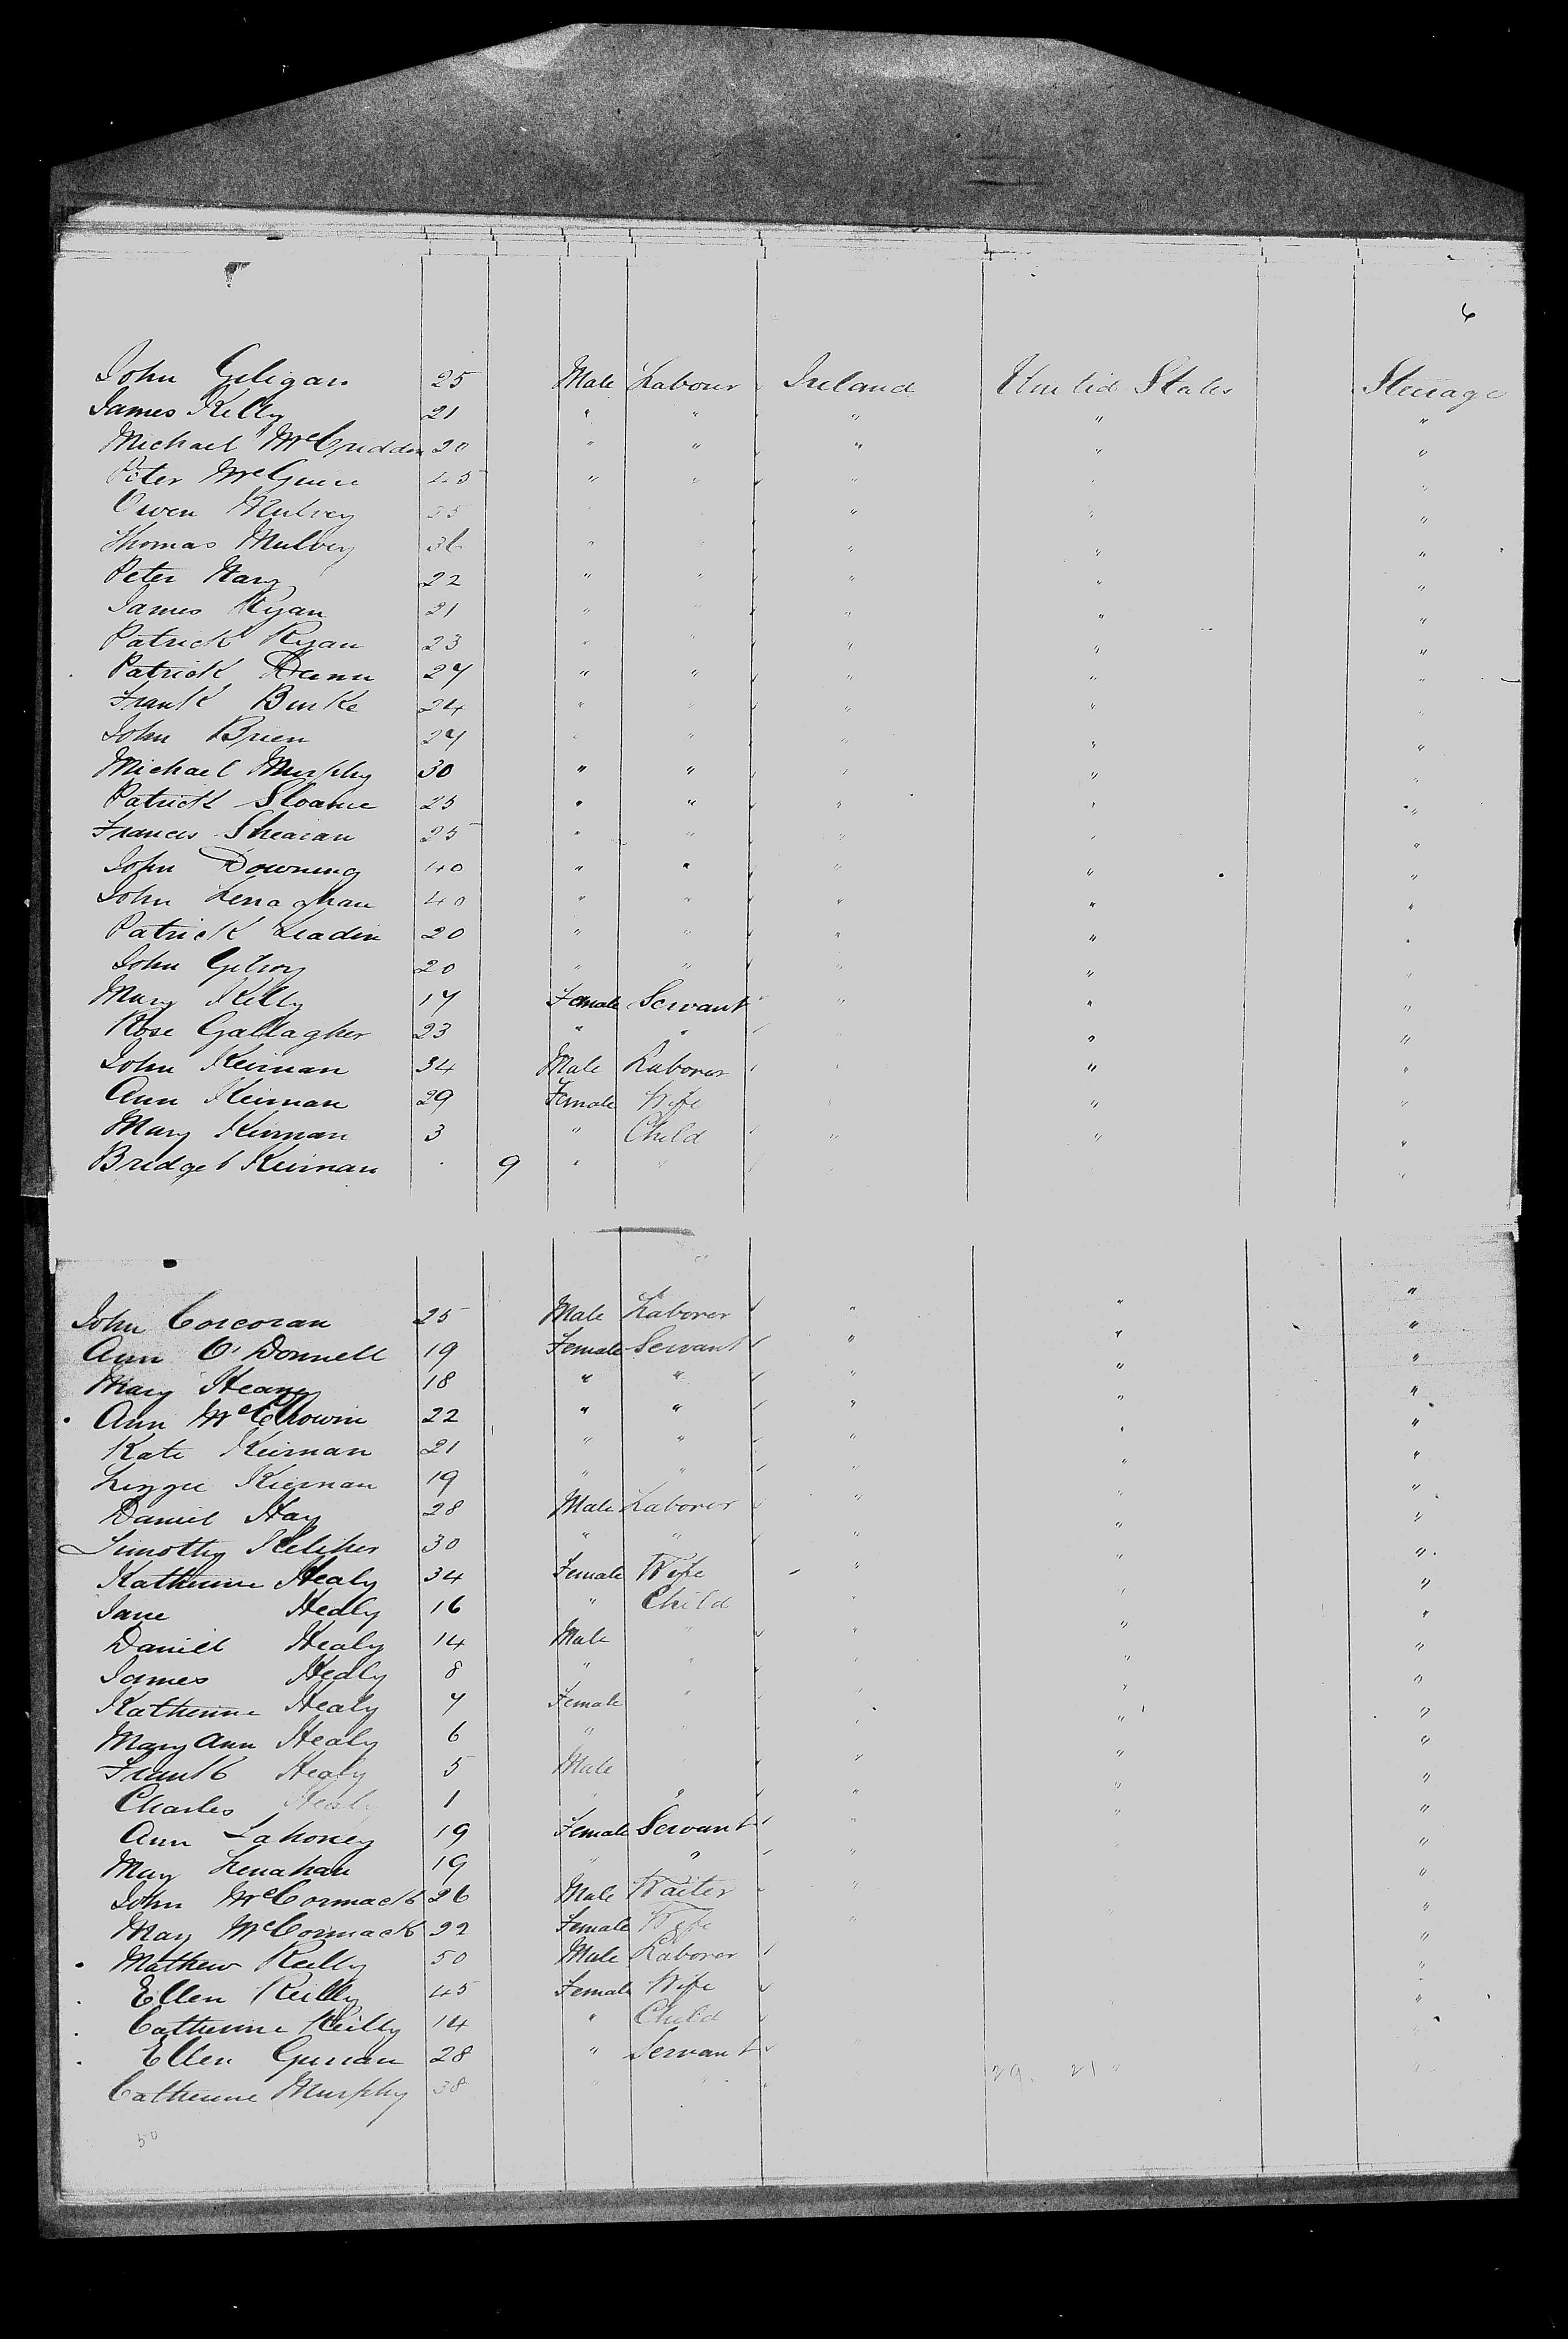 6
John Geligan 25 Male Labour Ireland United States Steerage
James Kelly 21 " " " " "
Michael 20 " " " " "
Peter McGuire 45 " " " " "
Owen Mulvey 25 " " "
Thomas Mulvey 36 " " " "
Peter 22 " " " " "
James Ryan 21 " " " "
Patrick Ryan 23 " " " " "
Patrick Dunn 27 " " " " "
Frank Burke 24 " " " " "
John Brien 27 " " " " "
Michael Murphy 30 " " " " "
Patrick Sloane 25 " " " " "
Frances Shearan 25 " " " " "
John Downing 40 " " " " "
John Lenaghan 40 " " " " "
Patrick Leadin 20 " " " " "
John Gilroy 20 " " " " "
Mary Kelly 17 Female Servant " " "
Rose Gallagher 23 " " " "
John Keirnan 34 Male Laborer " "
Ann Keirnan 29 Female Wife " "
Mary Kirnan 3 " Child " " "
Bridget Keirnan 9 " " "
John Corcoran 25 Male Laborer " " "
Ann O'Donnell 19 Female Servant " " "
Mary Heany 18 " " " " "
Ann 22 " " " " "
Kate Keirnan 21 " " " " "
Lizzie Kiernan 19 " " " " "
Daniel Hay 28 Male Laborer " " "
Timothy Keliher 30 " " " " "
Katherine Healy 34 Female Wife " " "
Jane Healy 16 " Child " " "
Daniel Healy 14 Male " " " "
James Healy 8 " " " " "
Katherine Healy 7 Female " " " "
Mary Ann Healy 6 " " " " "
Frank Healy 5 Male " " "
Charles Healy 1 " " " " "
Ann Lahoney 19 Female Servant " " "
May Lenahan 19 " " " "
John McCormack 26 Male Waiter " "
May McCormack 22 Female Wife " "
Mathew Reilly 50 Male Laborer "
Ellen Reilly 45 Female Wife "
Catherine Reilly 14 " Child "
Ellen 28 " Servant
Catherine Murphy 38 " " 29. 21 " "
50